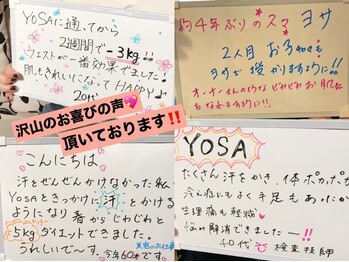 YOSAに通ってから
2週間で－3kg!!
ウエストが一番効果でました!
肌もきれいになってHAPPY♪
20代
約4年ぶりのスマ ヨサ
2人目 お子
授かりますように!!
オーナーさんのような
お肌に
なれますように!!
沢山のお喜びの声💖
頂いております‼
こんにちは
汗をぜんぜんかけなかった私
YOSAときっかけに汗とかける
ようになり 着から じわじわと
5kgダイエットできました。
うれしいで～す。
今年60才です。
YOSA
たくさん汗をかき、体ポカポカ
冷え症にもよく手足もあったか
生理痛も軽減
悩み解消できました―!!
40代 検査技師